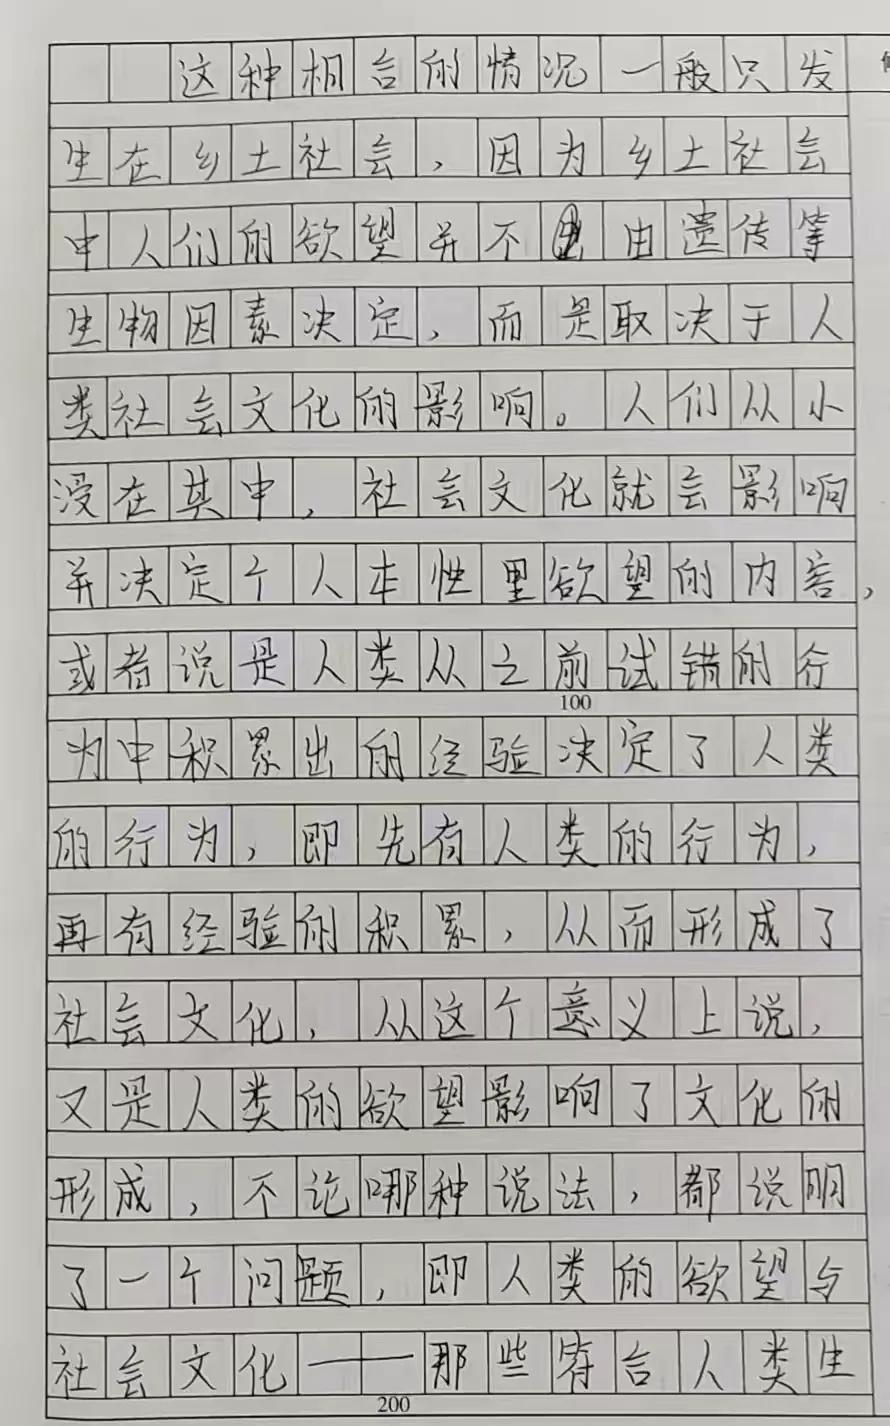 这种相合的情况一般只发
生在乡土社会，因为乡土社会
中人们的欲望并不由遗传等
生物因素决定，而是取决于人
类社会文化的影响。人们从小
浸在其中，社会文化就会影响
并决定个人本性里欲望的内容，
或者说是人类从之前试错的行
100
为中积累出的经验决定了人类
的行为，即先有人类的行为，
再有经验的积累，从而形成了
社会文化，从这个意义上说，
又是人类的欲望影响了文化的
形成，不论哪种说法，都说明
了一个问题，即人类的欲望与
社会文化——那些符合人类生
200